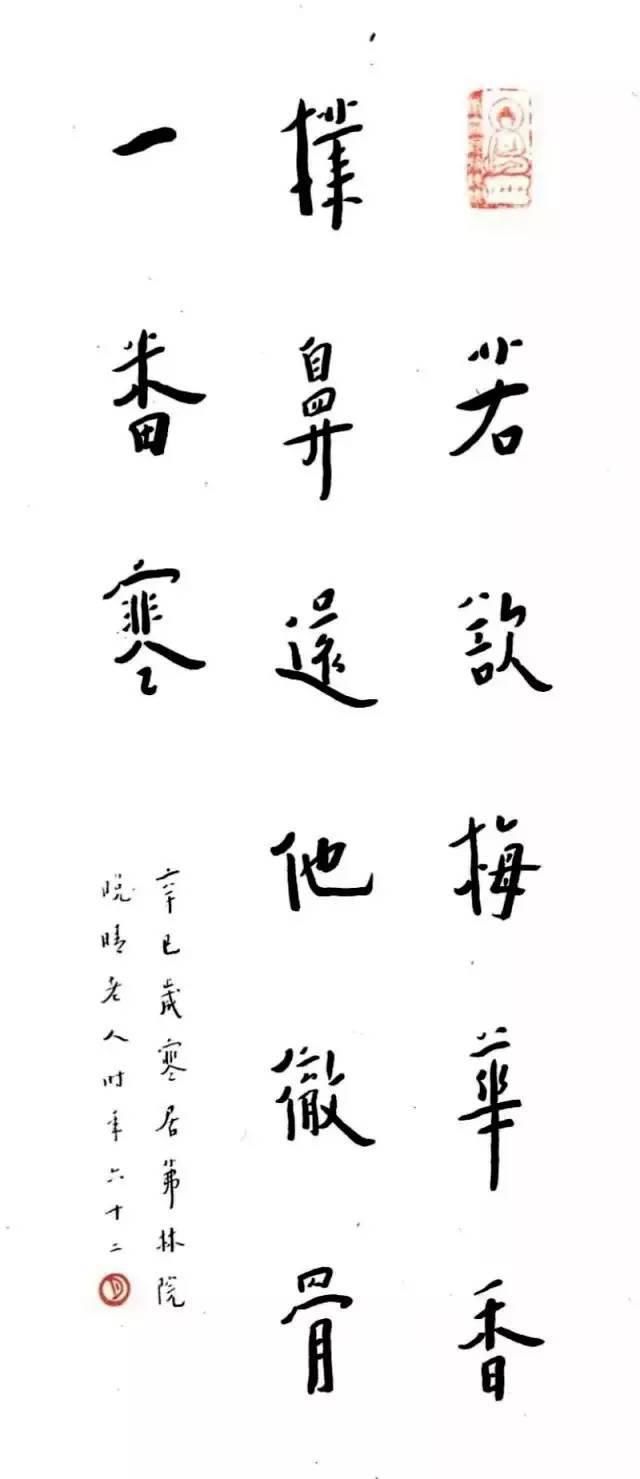 若欲梅華香
撲鼻還他徹骨
一番寒
辛巳歲寒居茀林院
晚晴老人时年六十二